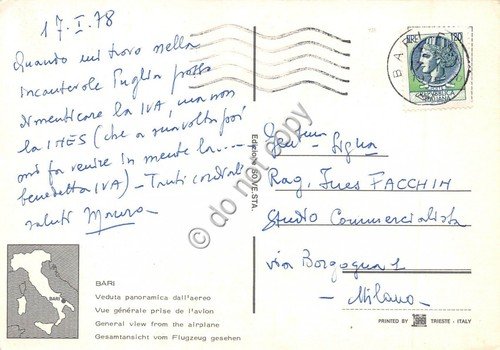 17.I.78
Quando mi trovo nella
incantevole Puglia posso
dimenticare la IVA, ma non
la INES (che a sua volta poi
mi fa venire in mente la....
benedetta IVA) - Tanti cordiali
saluti Mauro
BARI
LIRE 180
Edizione SOVESTA.
© do not copy
Gent. Sig.na
Rag. Ines FACCHIN
Studio Commercialista
via Borgogna 1
- Milano -
BARI
BARI
Veduta panoramica dall'aereo
Vue générale prise de l'avion
General view from the airplane
Gesamtansicht vom Flugzeug gesehen
PRINTED BY
TRIESTE - ITALY